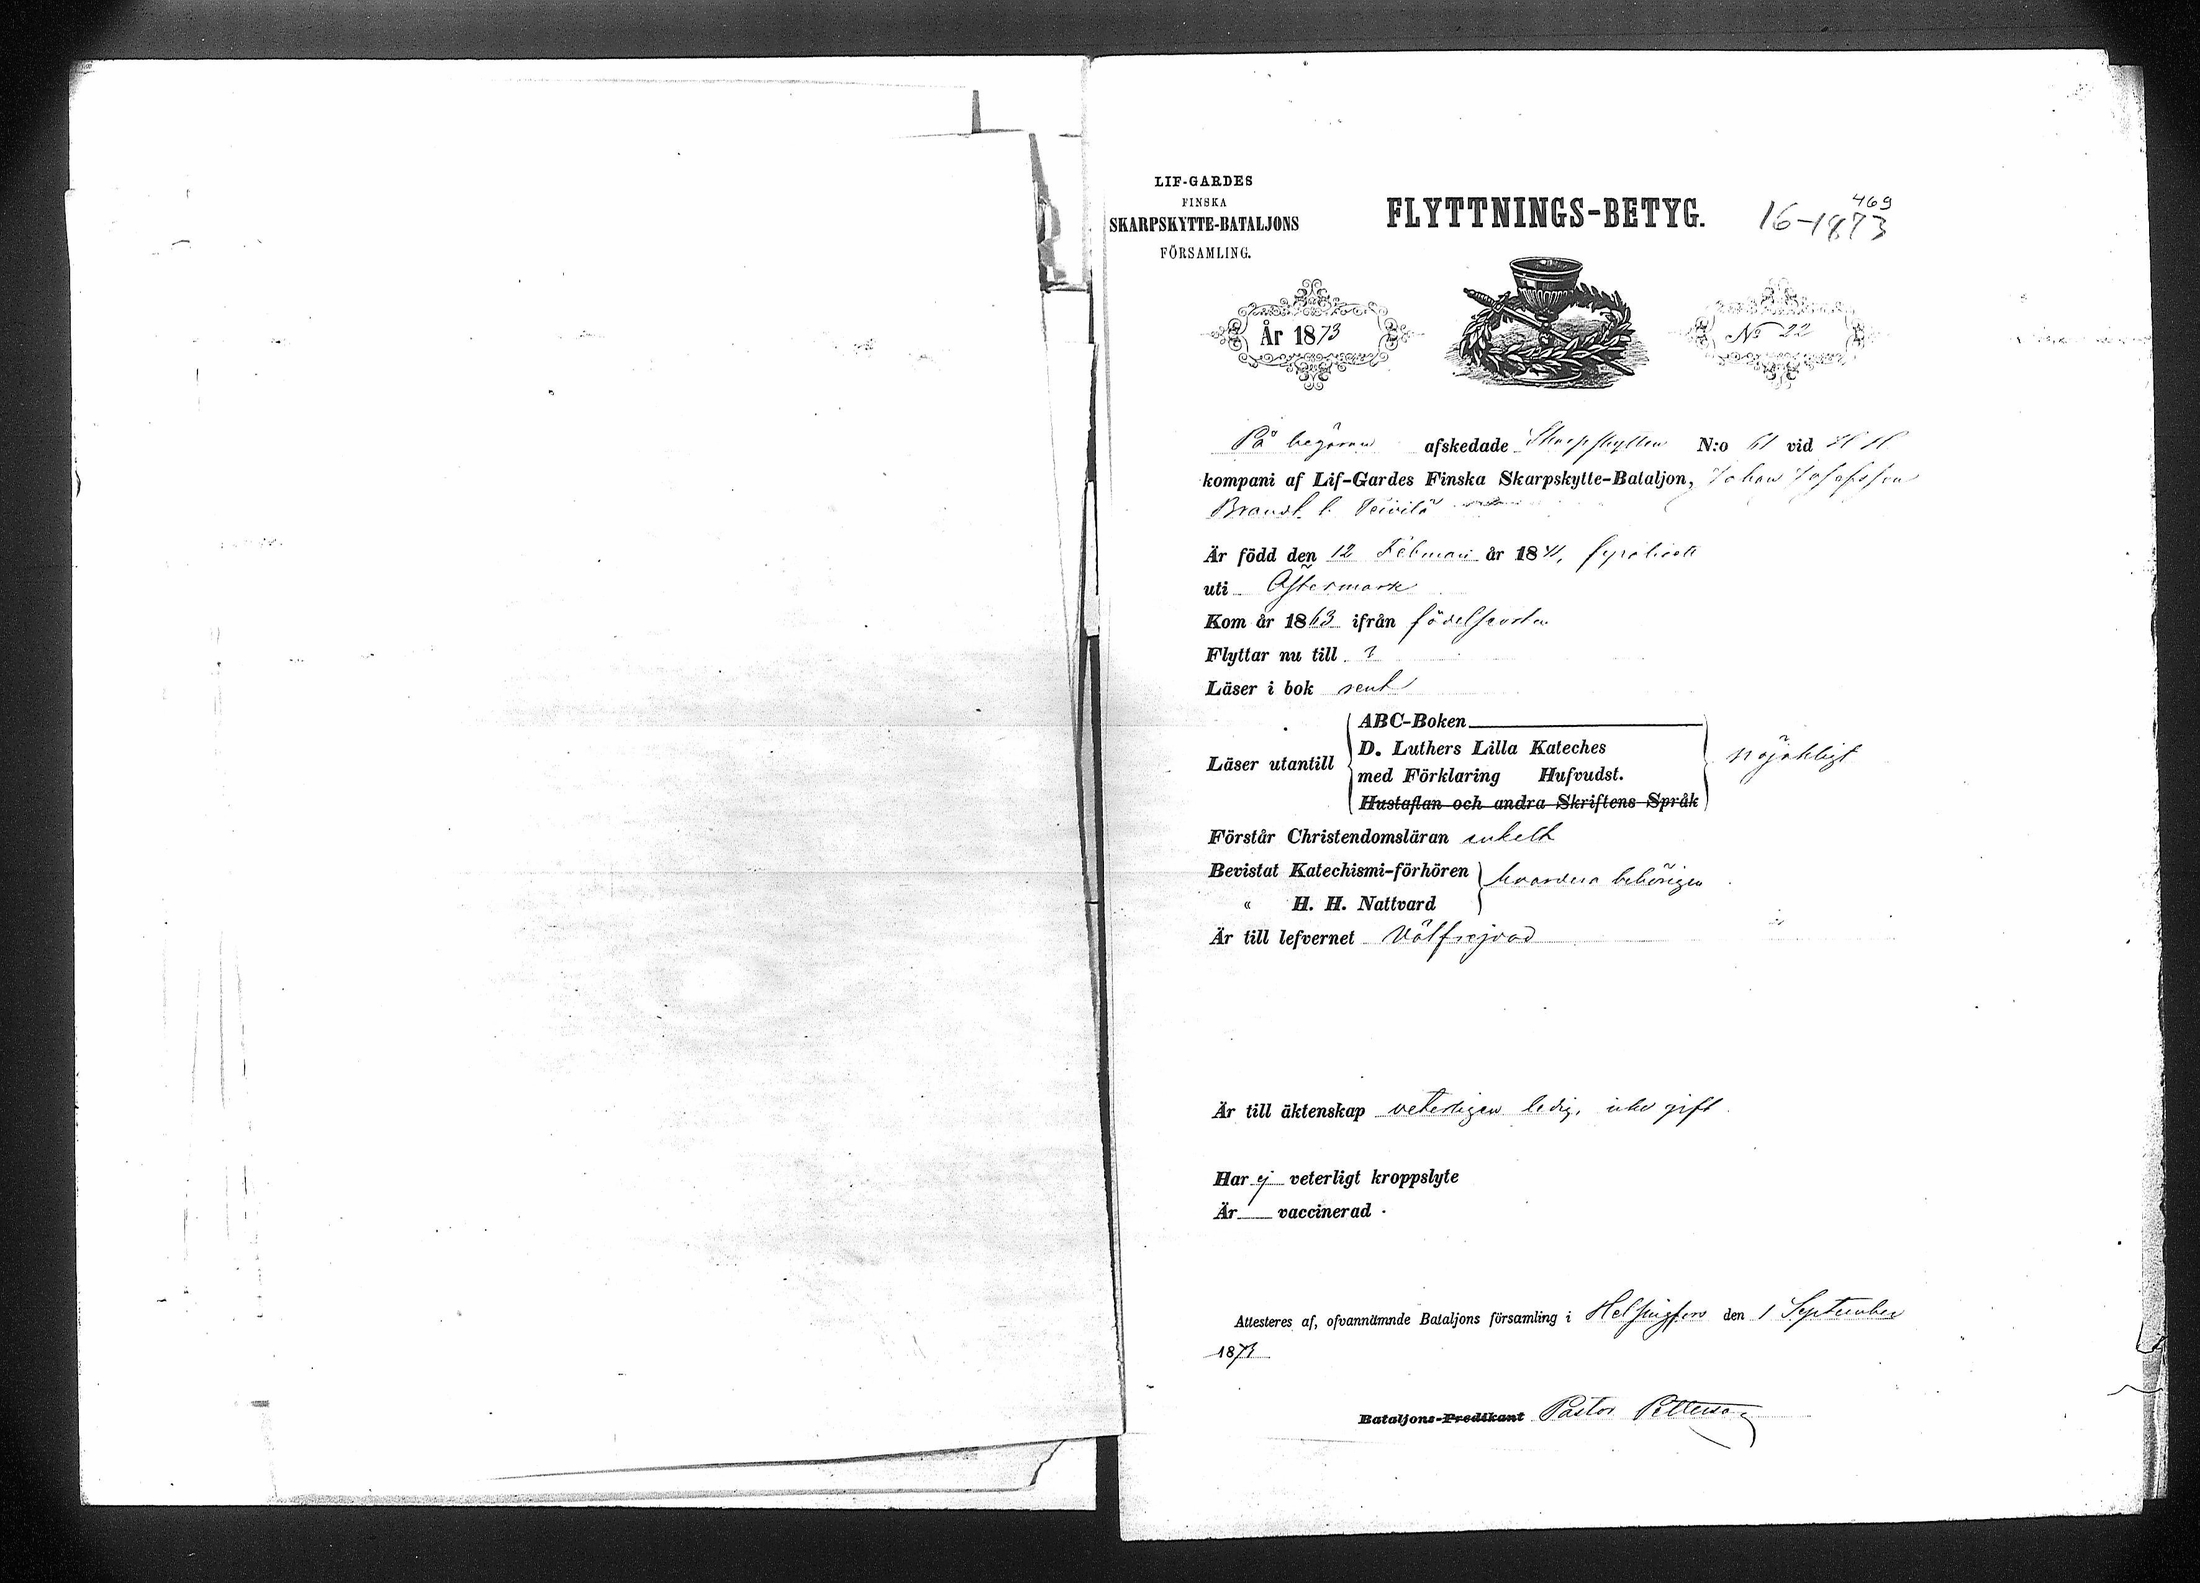 LIF-GARDES
FINSKA
SKARPSKYTTE-BATALJONS
FÖRSAMLING.
FLYTTNINGS-BETYG.
469
16-1873
År 1873
No 22
På begäran afskedade Skarpskytten N:o 61 vid
kompani af Lif-Gardes Finska Skarpskytte-Bataljon, Johan Josefsson
Brandt l. Peivilä
Är född den 12 Februari år 1841,
uti Östermark
Kom år 1863 ifrån födelseorten
Flyttar nu till ?
Läser i bok rent
ABC-Boken
Läser utantill D. Luthers Lilla Kateches
med Förklaring Hufvudst.
Hustaflan och andra Skriftens Språk
nöjaktigt
Förstår Christendomsläran enkelt
Bevistat Katechismi-förhören
« H. H. Nattvard
hvardera behörigen
Är till lefvernet Välfrejdad
Är till äktenskap veterligen ledig, icke gift
Har ej veterligt kroppslyte
Är vaccinerad
Attesteres af, ofvannämnde Bataljons församling i Helsingfors den 1 September
1873
Bataljons-Predikant Pastor Petterson